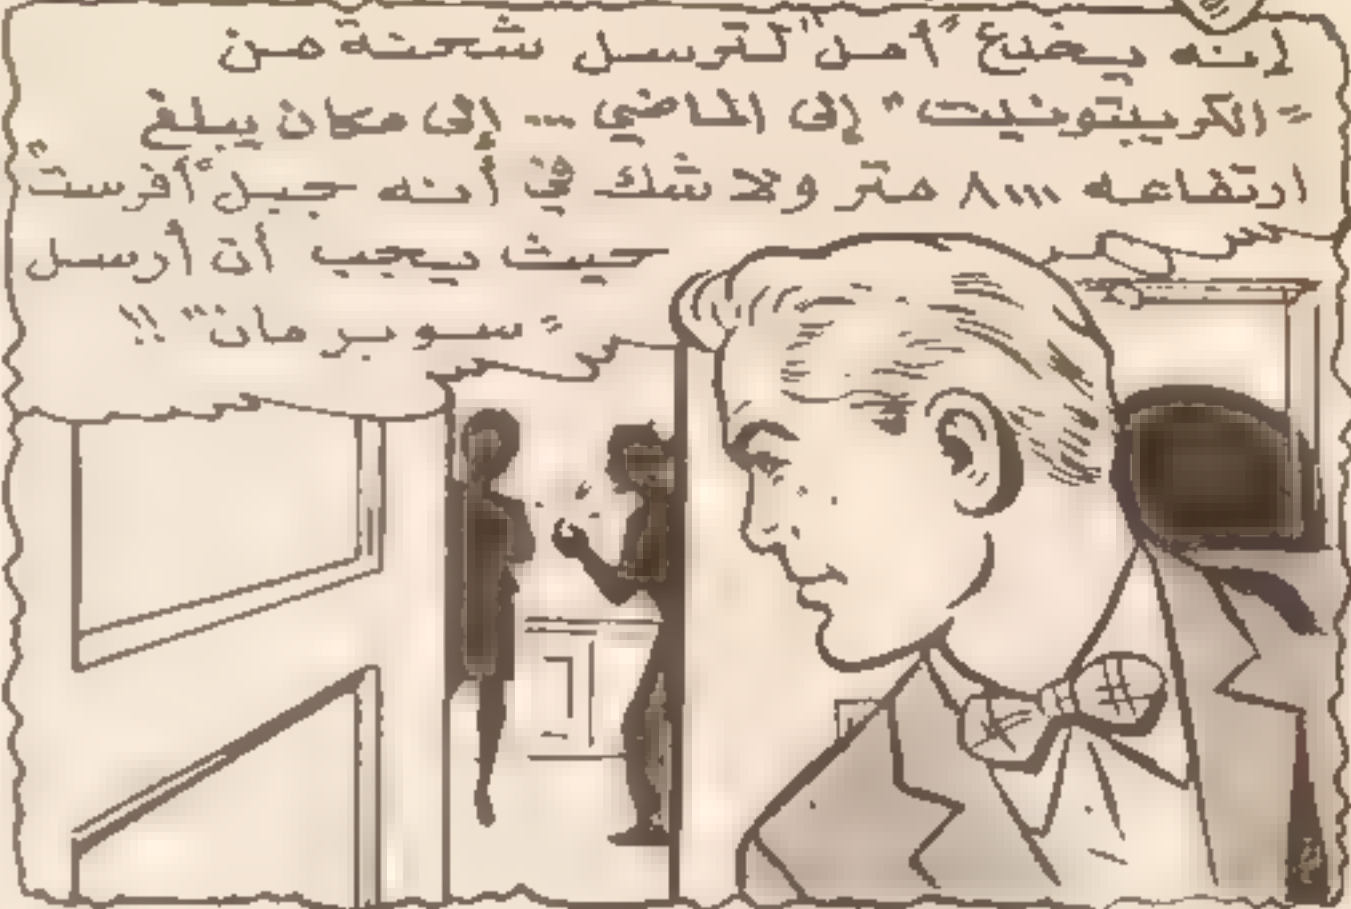 إنه يخدع "أمل" لترسل شحنة من
"الكريبتونيت" إلى الماضي ... إلى مكان يبلغ
ارتفاعه ٨,,,, متر ولا شك في أنه جبل "أفرست"
حيث يجب أن أرسل
"سوبرمان" !!